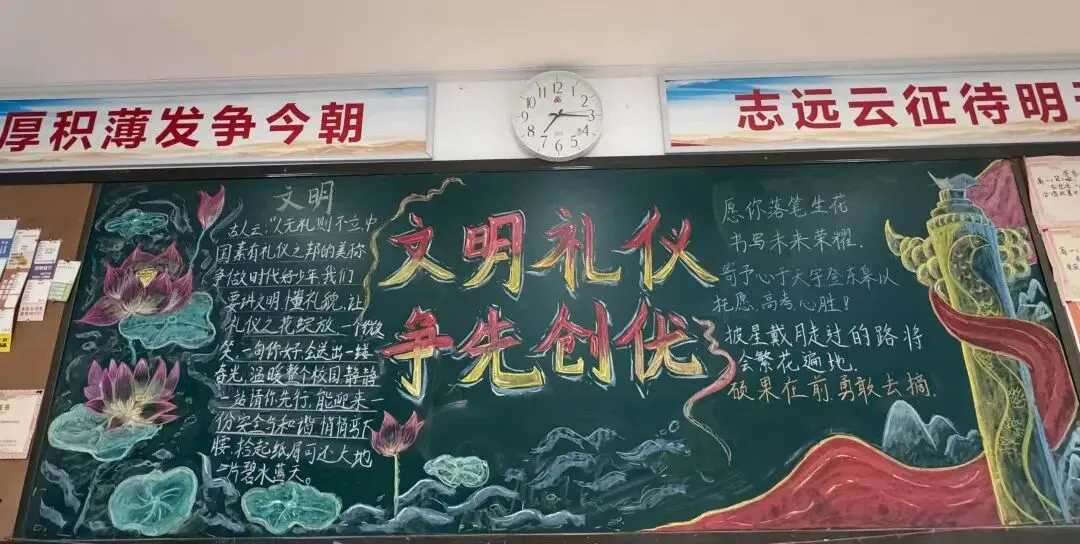 厚积薄发争今朝
志远云征待明
文明
古人云:"人无礼则不立,中
国素有礼仪之邦的美称
争做时代好少年,我们
要讲文明,懂礼貌,让
礼仪之花绽放,一个微
笑,一句你好会送出一缕
春光,温暖整个校园,静静
站请你先行,能迎来一
份安全与和谐,悄悄弯下
腰,拾起纸屑可还大地
一片碧水蓝天。
文明礼仪
争先创优
愿你落笔生花
书写未来荣耀.
寄予心于天字登东皋以
托愿,高考,心胜!
披星戴月走过的路将
会繁花遍地.
硕果在前,勇敢去摘.
12
1
2
3
4
5
6
7
8
9
10
11